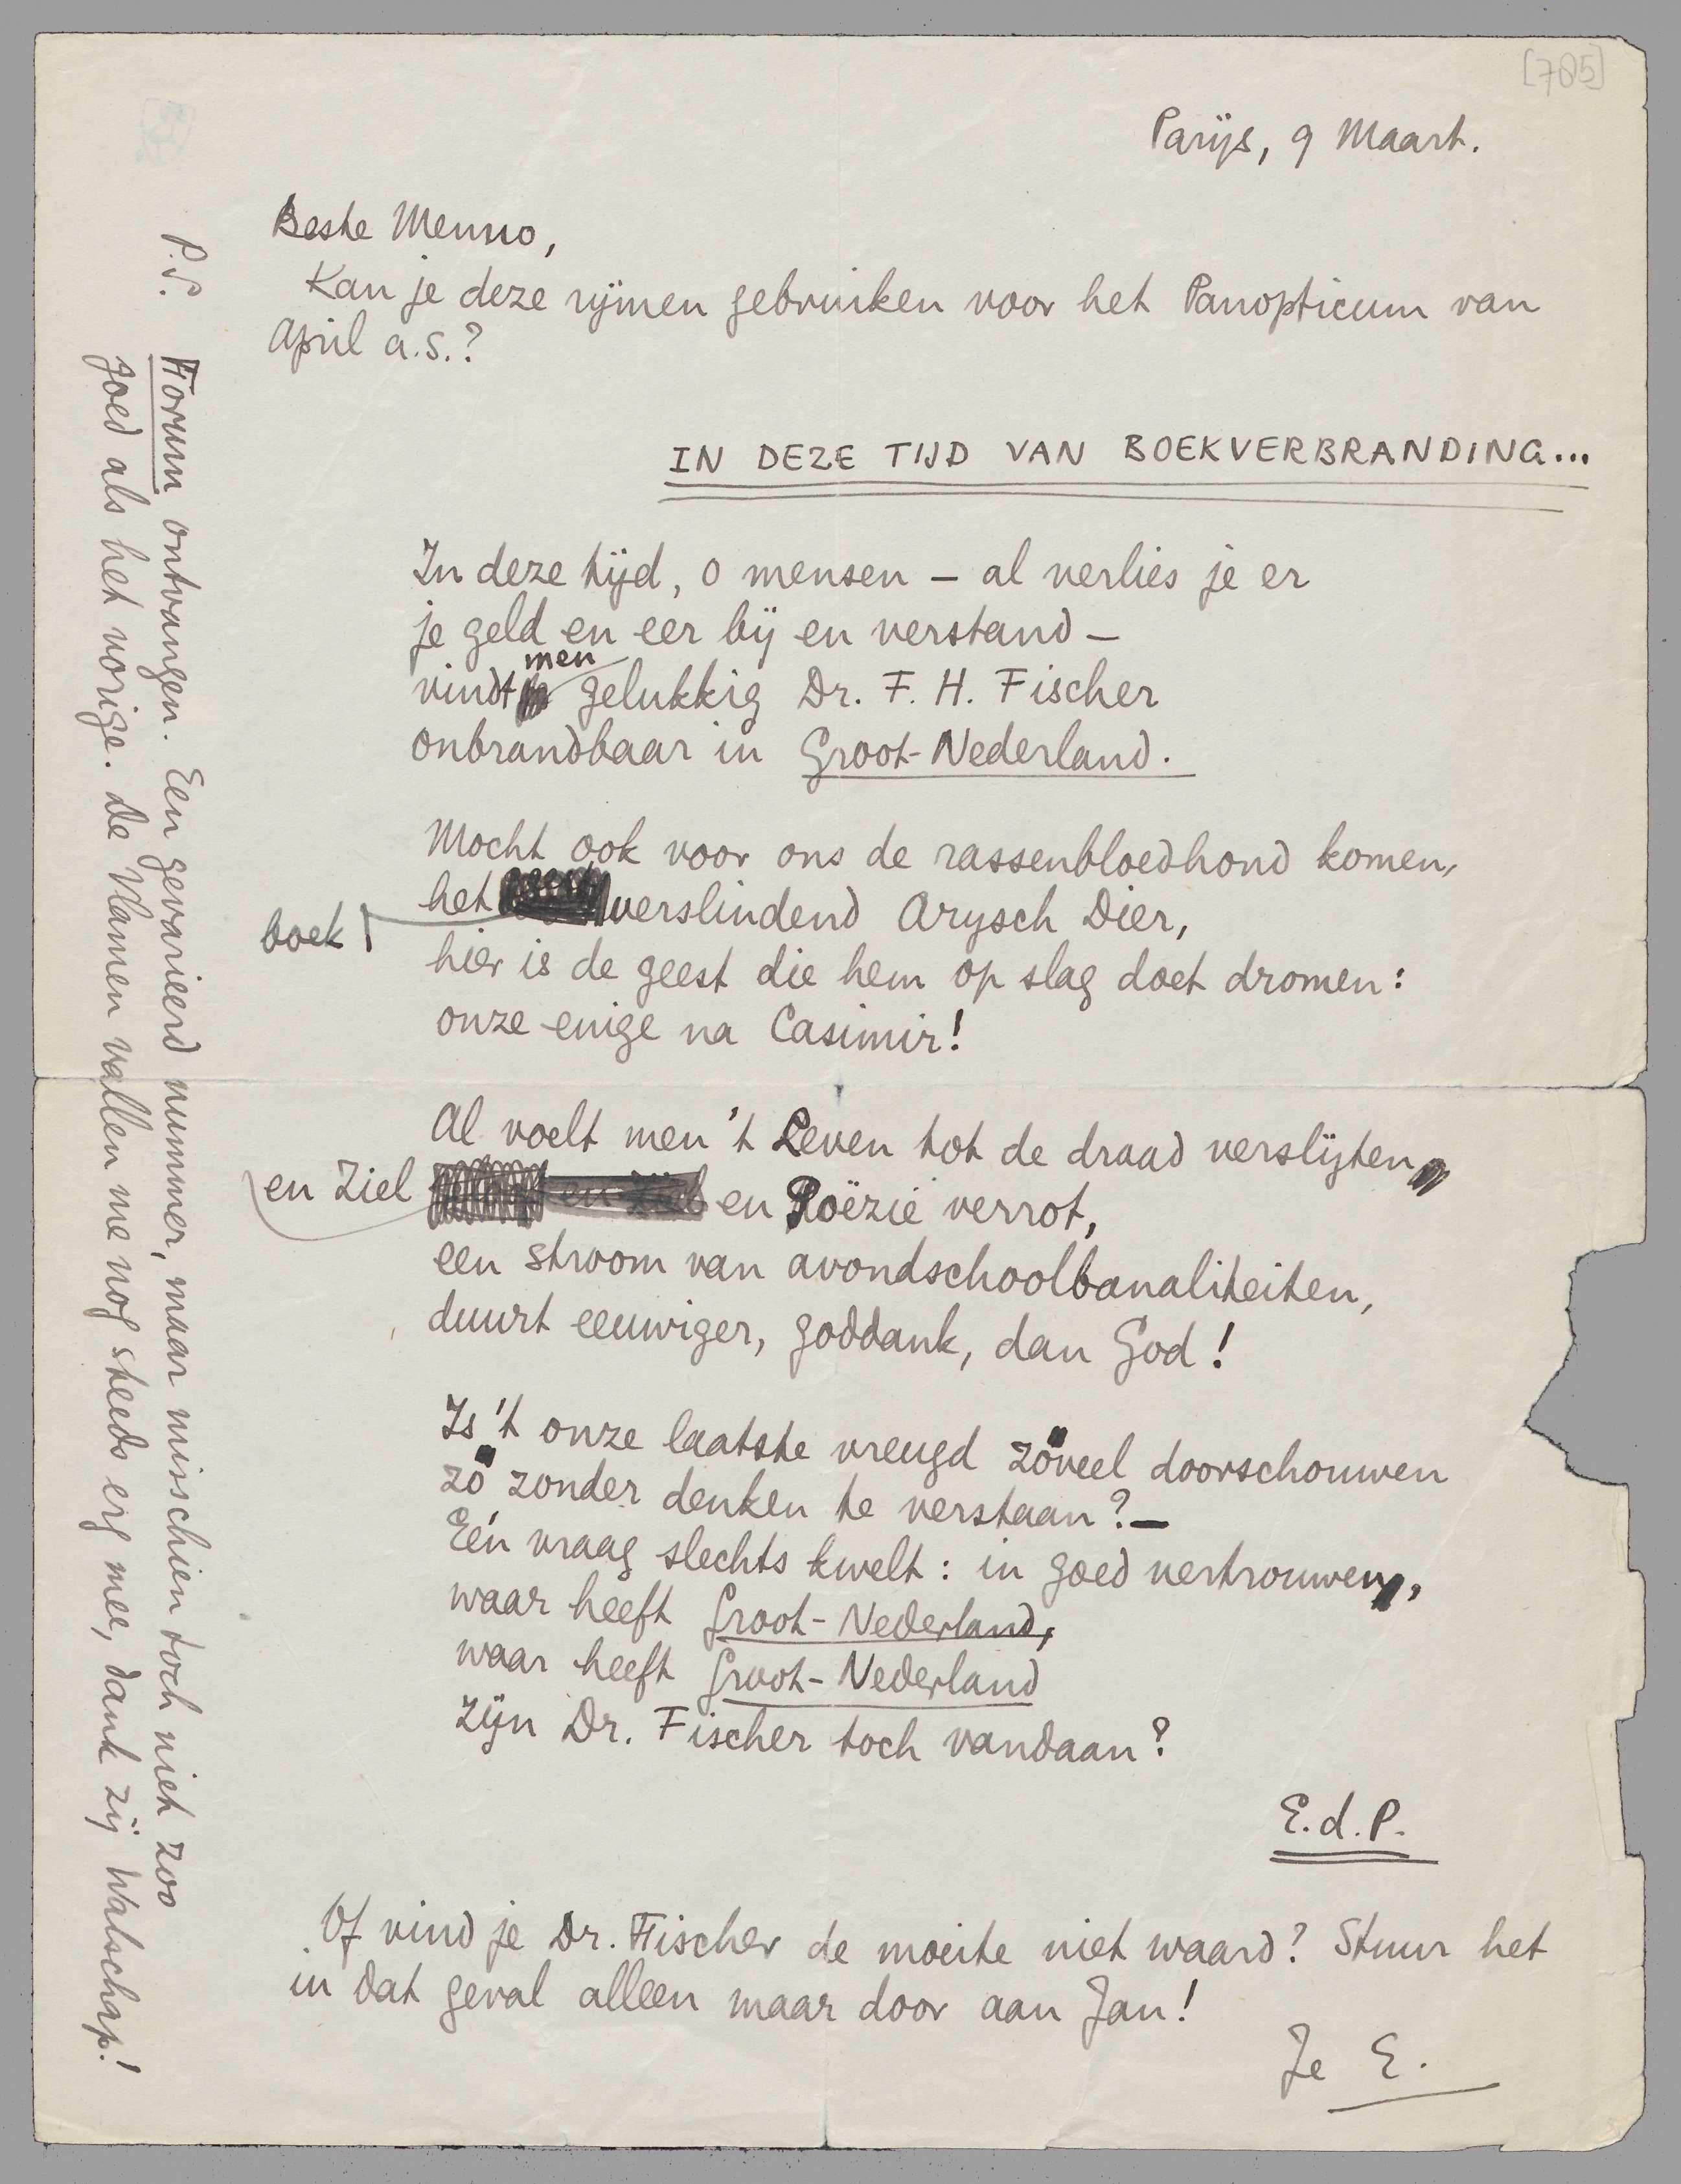 [705]
Parijs, 9 Maart.
Beste Menno,
Kan je deze rijmen gebruiken voor het Panopticum van
April a.s.?
IN DEZE TIJD VAN BOEKVERBRANDING...
In deze tijd, o mensen – al verlies je er
je geld en eer bij en verstand –
vindt men gelukkig Dr. F. H. Fischer
onbrandbaar in Groot-Nederland.
Mocht ook voor ons de rassenbloedhond komen,
het boekverslindend Arysch Dier,
hier is de geest die hem op slag doet dromen:
onze enige na Casimir!
Al voelt men 't Leven tot de draad verslijten
en Ziel en Poëzie verrot,
een stroom van avondschoolbanaliteiten,
duurt eeuwiger, goddank, dan God!
Is 't onze laatste vreugd zóveel doorschouwen
zó zonder denken te verstaan? –
Eén vraag slechts kwelt: in goed vertrouwen,
waar heeft Groot-Nederland,
waar heeft Groot-Nederland
zijn Dr. Fischer toch vandaan?
E.d.P.
Of vind je Dr. Fischer de moeite niet waard? Stuur het
in dat geval alleen maar door aan Jan!
Je E.
P.S. Forum ontvangen. Een gevarieerd nummer, maar misschien toch niet zoo
goed als het vorige. De Vlamen vallen me nog steeds erg mee, dank zij Walschap!